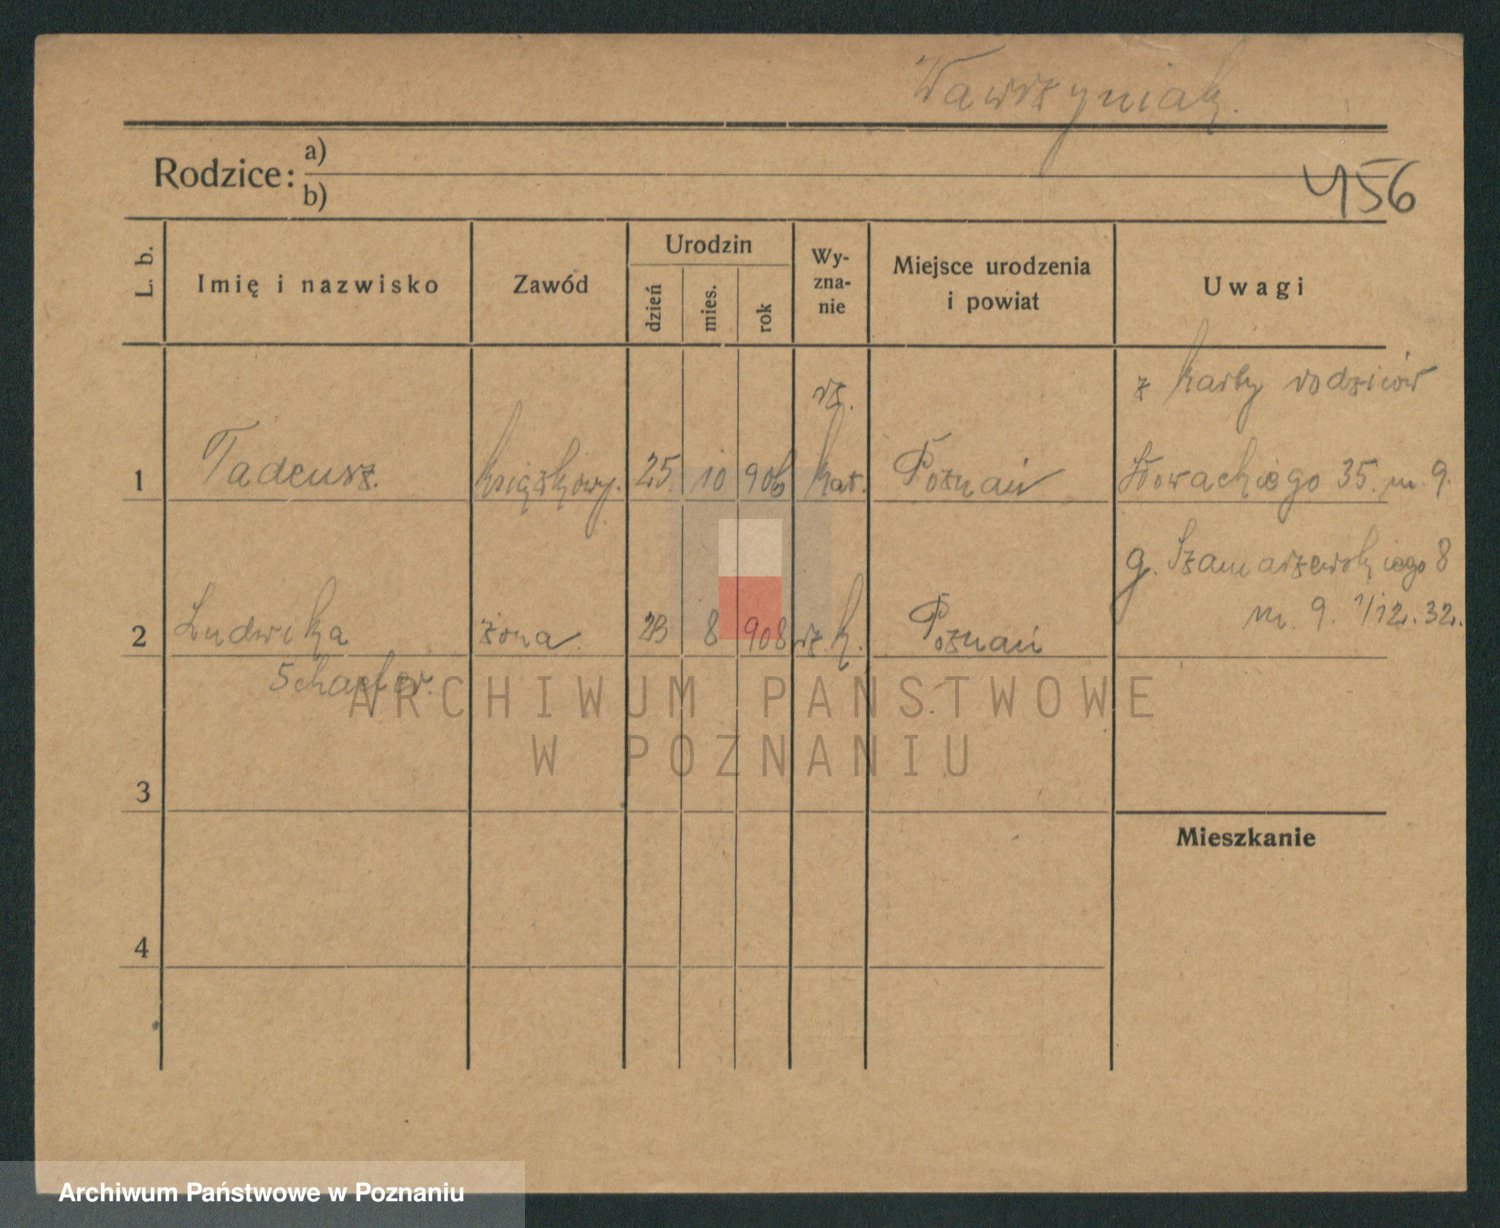 Wawrzyniak.
Rodzice: a)
b)
456
L. b.
Imię i nazwisko
Zawód
Urodzin
dzień
mies.
rok
Wy-
zna-
nie
Miejsce urodzenia
i powiat
Uwagi
z karty rodziców
rz.
1 Tadeusz. książkowy. 25. 10 906 kat. Poznań Słowackiego 35. m. 9.
g. Szamarzewskiego 8
m. 9. 1/12. 32.
2 Ludwika żona. 23 8 908 rz. k. Poznań
Schaefer.
ARCHIWUM PAŃSTWOWE
W POZNANIU
3
Mieszkanie
4
Archiwum Państwowe w Poznaniu